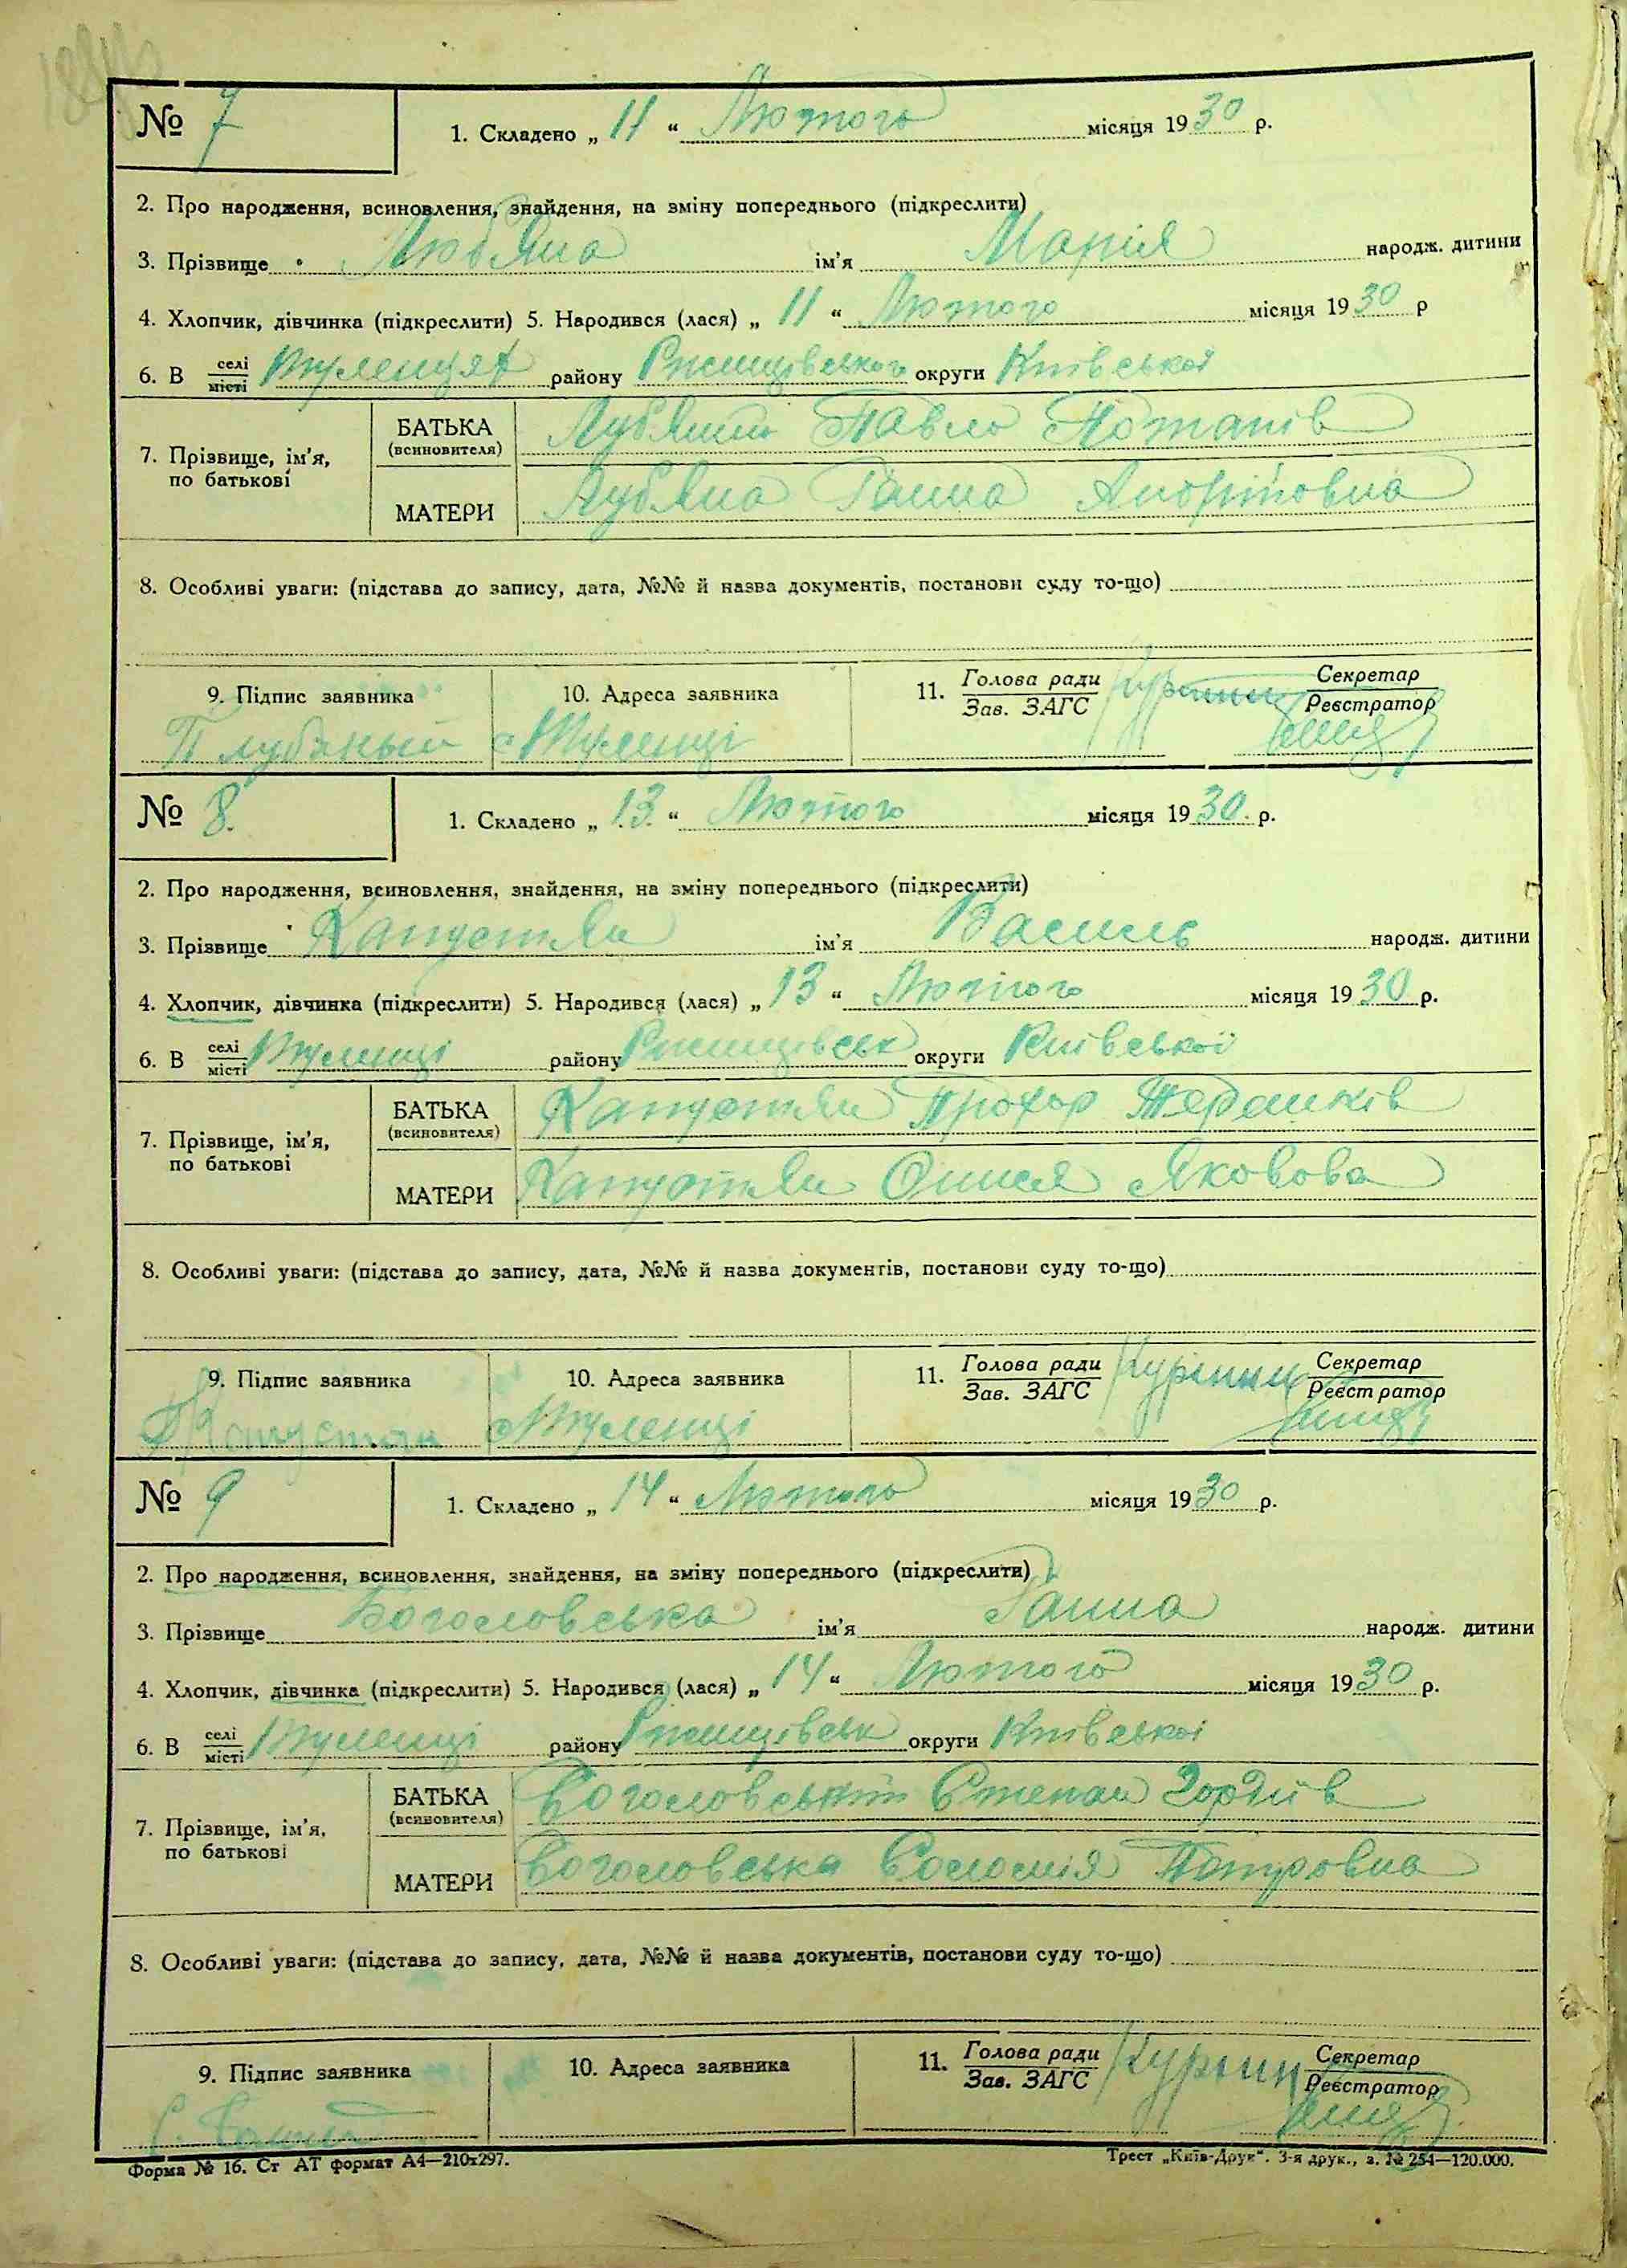 № 7
1. Складено „ 11 “ Лютого місяця 1930 р.
2. Про народження, всиновлення, знайдення, на зміну попереднього (підкреслити)
3. Прізвище Люб'яна ім'я Марія народж. дитини
4. Хлопчик, дівчинка (підкреслити) 5. Народився (лася) „ 11 “ Лютого місяця 1930 р
6. В селі місті Туленцях району Ржищівського округи Київської
7. Прізвище, ім'я, по батькові
БАТЬКА (всиновителя) Луб'яний Павло Потапів
МАТЕРИ Луб'яна Ганна
8. Особливі уваги: (підстава до запису, дата, №№ й назва документів, постанови суду то-що)
9. Підпис заявника
10. Адреса заявника
11. Голова ради Зав. ЗАГС
Секретар Реєстратор
П Лубяный
с Туленці
№ 8.
1. Складено „ 13. “ Лютого місяця 1930. р.
2. Про народження, всиновлення, знайдення, на зміну попереднього (підкреслити)
3. Прізвище Капустян ім'я Василь народж. дитини
4. Хлопчик, дівчинка (підкреслити) 5. Народився (лася) „ 13 “ Лютого місяця 1930 р.
6. В селі місті Туленці району Ржищівськ округи Київської
7. Прізвище, ім'я, по батькові
БАТЬКА (всиновителя) Капустян Прохор
МАТЕРИ Капустян Яковова
8. Особливі уваги: (підстава до запису, дата, №№ й назва документів, постанови суду то-що)
9. Підпис заявника
10. Адреса заявника
11. Голова ради Зав. ЗАГС
Секретар Реєстратор
П Капустян
с Туленці
№ 9
1. Складено „ 14 “ Лютого місяця 1930 р.
2. Про народження, всиновлення, знайдення, на зміну попереднього (підкреслити)
3. Прізвище Богословська ім'я Ганна народж. дитини
4. Хлопчик, дівчинка (підкреслити) 5. Народився (лася) „ 14 “ Лютого місяця 1930 р.
6. В селі місті Туленці району Ржищівськ округи Київської
7. Прізвище, ім'я, по батькові
БАТЬКА (всиновителя) Богословський Степан Гордіїв
МАТЕРИ Богословська Соломія Петровна
8. Особливі уваги: (підстава до запису, дата, №№ й назва документів, постанови суду то-що)
9. Підпис заявника
10. Адреса заявника
11. Голова ради Зав. ЗАГС
Секретар Реєстратор
Форма № 16. Ст АТ формат А4—210х297.
Трест „Київ-Друк“. 3-я друк., з. № 254—120.000.